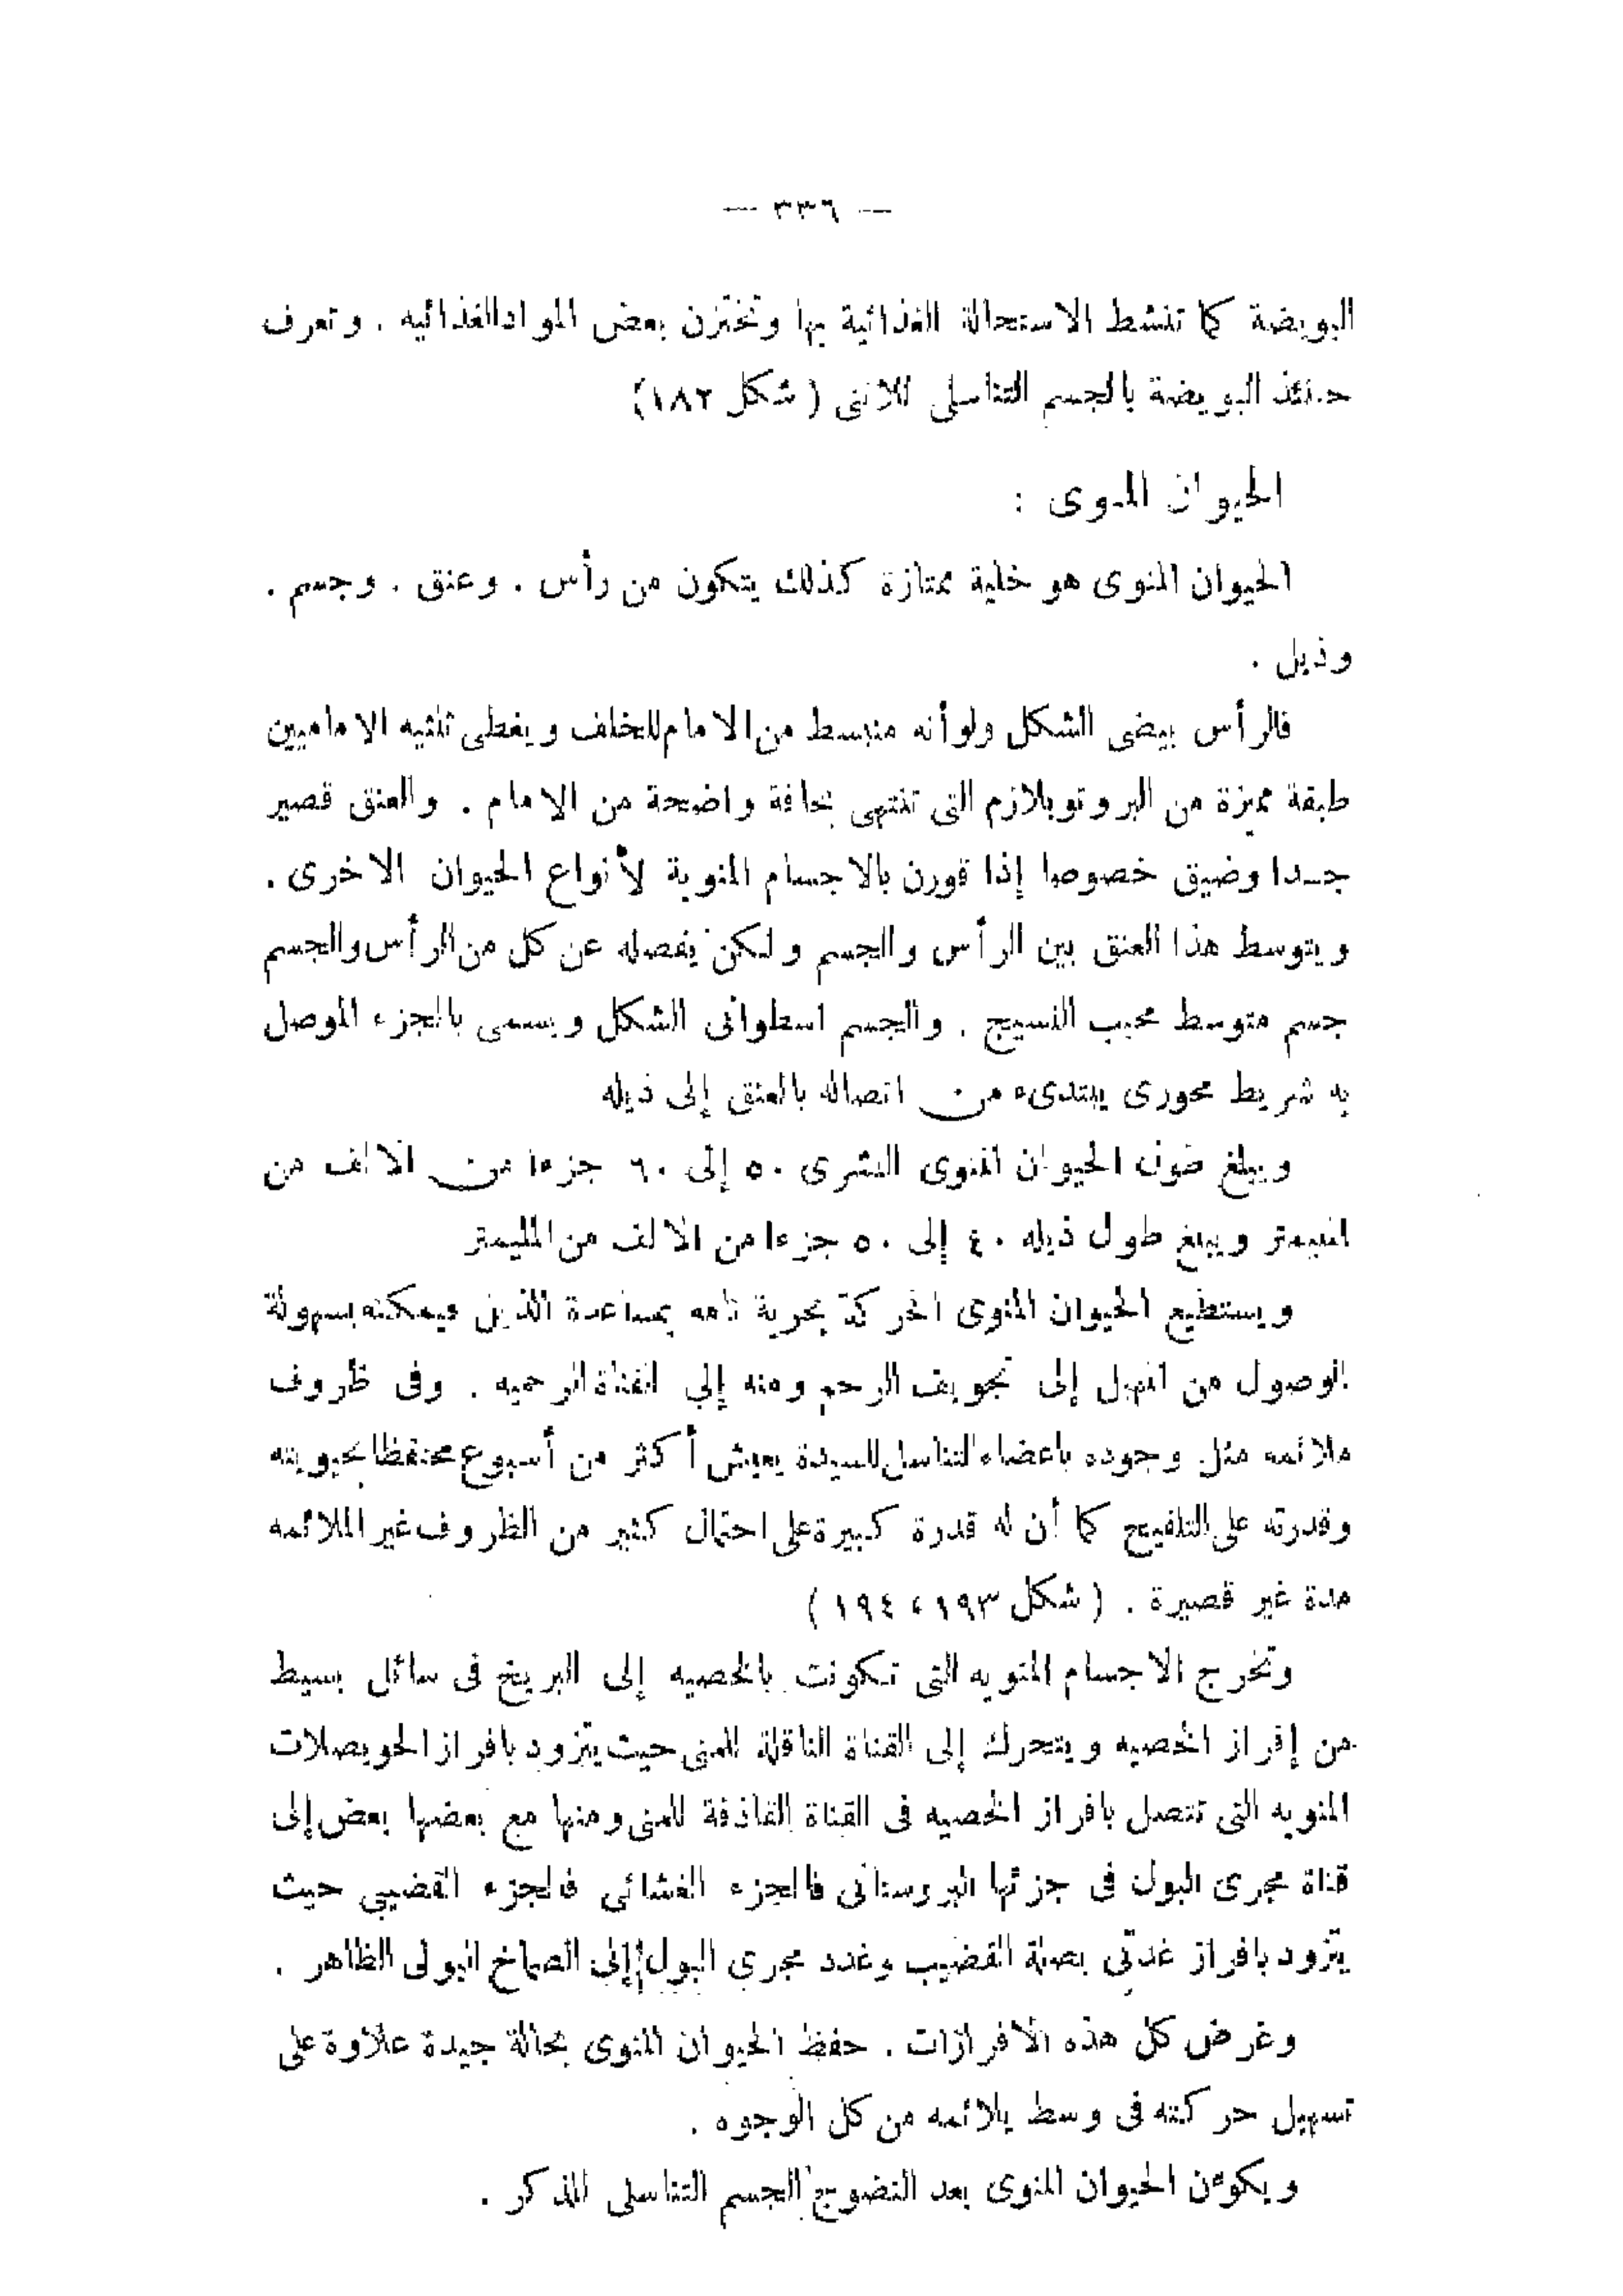 — ٣٣٦ —
البويضة كما تنشط الاستحالة الغذائية بها وتختزن بعض المواد الغذائيه . وتعرف
حينئذ البويضة بالجسم التناسلى للانثى ( شكل ١٨٢)
الحيوان المنوى :
الحيوان المنوى هو خلية ممتازة كذلك يتكون من رأس . وعنق . وجسم .
وذيل .
فالرأس بيضى الشكل ولو أنه منبسط من الامام للخلف ويغطى ثلثيه الاماميين
طبقة مميزة من البروتوبلازم التى تنتهى بحافة واضحة من الامام . والعنق قصير
جـدا وضيق خصوصا إذا قورن بالاجسام المنوية لأنواع الحيوان الاخرى .
ويتوسط هذا العنق بين الرأس والجسم ولكن يفصله عن كل من الرأس والجسم
جسم متوسط محبب النسيج . والجسم اسطوانى الشكل ويسمى بالجزء الموصل
به شريط محورى يبتدىء من اتصاله بالعنق إلى ذيله
ويبلغ طول الحيوان المنوى البشرى ٥٠ إلى ٦٠ جزءا من الالف من
المليمتر ويبلغ طول ذيله ٤٠ إلى ٥٠ جزءا من الالف من المليمتر
ويستطيع الحيوان المنوى الحركة بحرية تامه بمساعدة الذيل فيمكنه بسهولة
الوصول من المهبل إلى تجويف الرحم ومنه إلي القناة الرحميه . وفى ظروف
ملائمه مثل وجوده باعضاء التناسل للسيدة يعيش أكثر من أسبوع محتفظا بحيويته
وقدرته على التلقيح كما أن له قدرة كبيرة على احتمال كثير من الظروف غير الملائمه
مدة غير قصيرة . ( شكل ١٩٣ ، ١٩٤ )
وتخرج الاجسام المنويه التى تكونت بالخصيه إلى البربخ فى سائل بسيط
من إفراز الخصيه ويتحرك إلى القناة الناقلة للمنى حيث يتزود بافراز الحويصلات
المنويه التى تتصل بافراز الخصيه فى القناة القاذفة للمنى ومنها مع بعضها بعض إلى
قناة مجرى البول فى جزئها البروستاتى فالجزء الغشائى فالجزء القضيبي حيث
يتزود بافراز غدتى بصلة القضيب وغدد مجرى البول إلى الصماخ البولى الظاهر .
وغرض كل هذه الافرازات . حفظ الحيوان المنوى بحالة جيدة علاوة على
تسهيل حركته فى وسط يلائمه من كل الوجوه .
ويكون الحيوان المنوى بعد النضوج الجسم التناسلى للذكر .